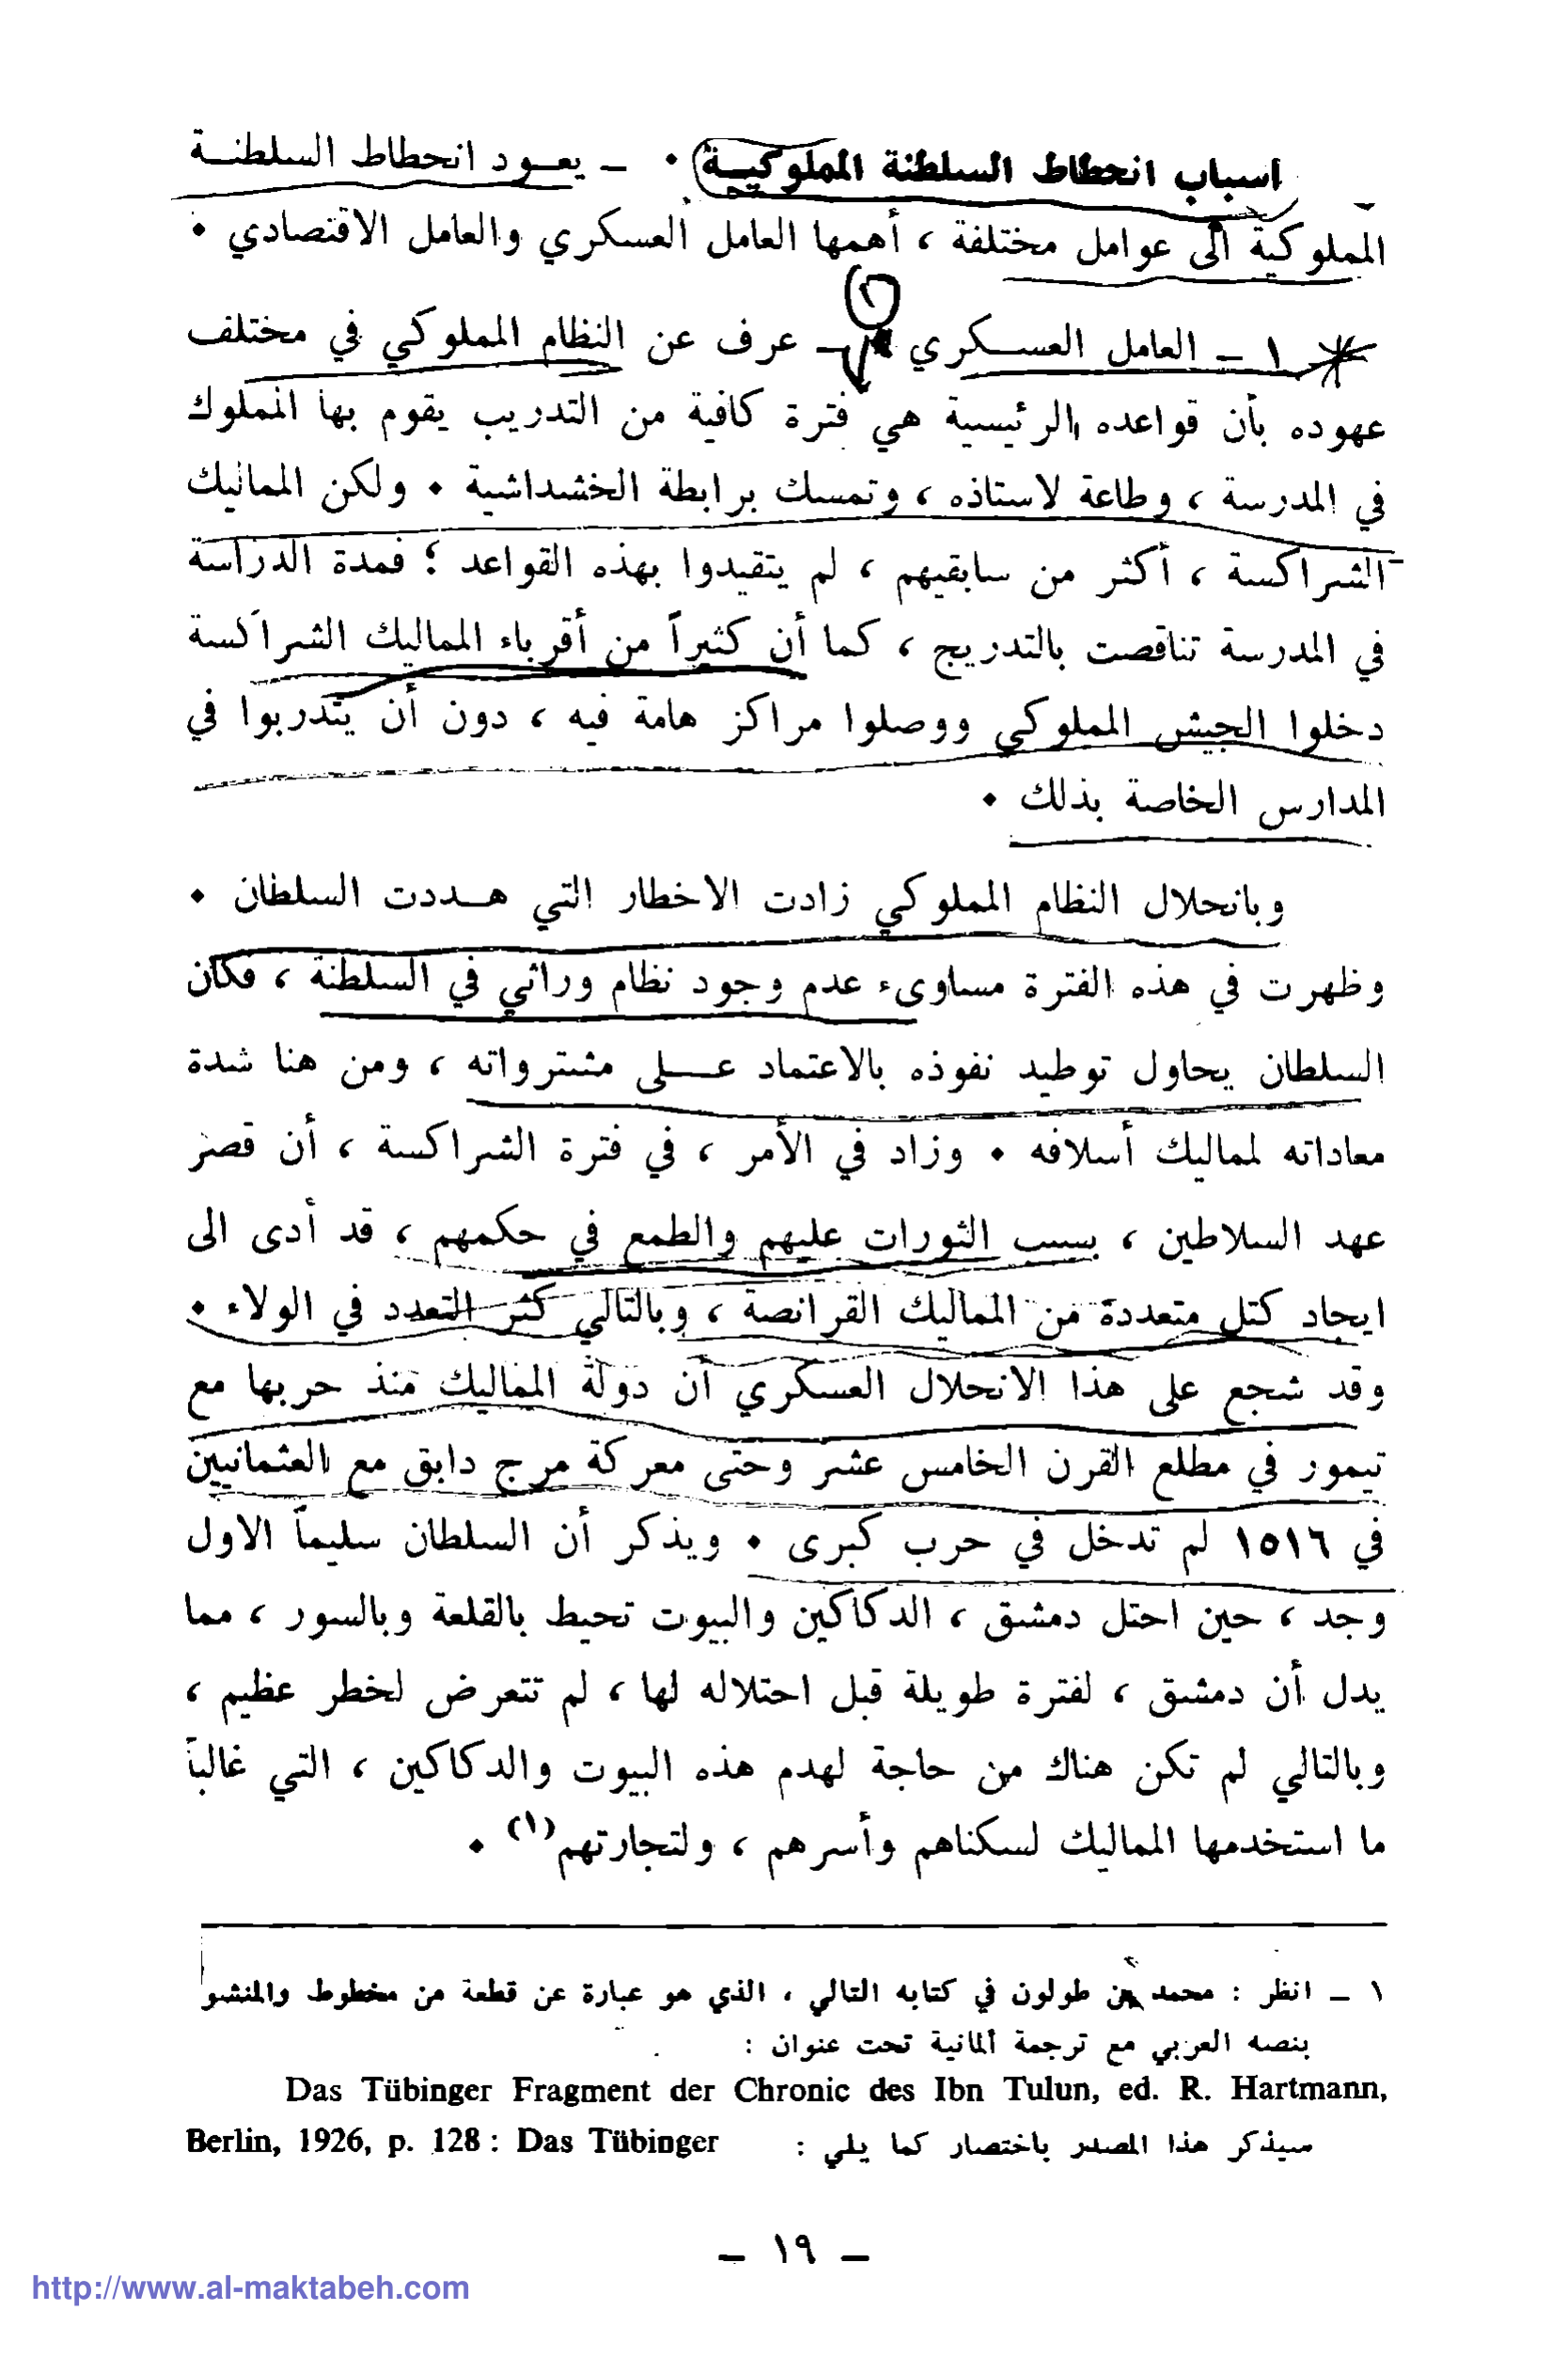 اسباب انحطاط السلطنة المملوكيـة . ــ يعـود انحطاط السلطنـة
المملوكية الى عوامل مختلفة ، أهمها العامل العسكري والعامل الاقتصادي .
١ ــ العامل العسـكري ــ عرف عن النظام المملوكي في مختلف
عهوده بأن قواعده الرئيسية هي فترة كافية من التدريب يقوم بها المملوك
في المدرسة ، وطاعة لاستاذه ، وتمسك برابطة الخشداشية . ولكن المماليك
الشراكسة ، أكثر من سابقيهم ، لم يتقيدوا بهذه القواعد ؛ فمدة الدراسة
في المدرسة تناقصت بالتدريج ، كما أن كثيراً من أقرباء المماليك الشراكسة
دخلوا الجيش المملوكي ووصلوا مراكز هامة فيه ، دون أن يتدربوا في
المدارس الخاصة بذلك .
وبانحلال النظام المملوكي زادت الاخطار التي هـددت السلطان .
وظهرت في هذه الفترة مساوىء عدم وجود نظام وراثي في السلطنة ، فكان
السلطان يحاول توطيد نفوذه بالاعتماد عـلى مشترواته ، ومن هنا شدة
معاداته لمماليك أسلافه . وزاد في الأمر ، في فترة الشراكسة ، أن قصر
عهد السلاطين ، بسبب الثورات عليهم والطمع في حكمهم ، قد أدى الى
ايجاد كتل متعددة من المماليك القرانصة ، وبالتالي كثر التعدد في الولاء .
وقد شجع على هذا الانحلال العسكري أن دولة المماليك منذ حربها مع
تيمور في مطلع القرن الخامس عشر وحتى معركة مرج دابق مع العثمانيين
في ١٥١٦ لم تدخل في حرب كبرى . ويذكر أن السلطان سليماً الاول
وجد ، حين احتل دمشق ، الدكاكين والبيوت تحيط بالقلعة وبالسور ، مما
يدل أن دمشق ، لفترة طويلة قبل احتلاله لها ، لم تتعرض لخطر عظيم ،
وبالتالي لم تكن هناك من حاجة لهدم هذه البيوت والدكاكين ، التي غالباً
ما استخدمها المماليك لسكناهم وأسرهم ، ولتجارتهم (١) .
١ ــ انظر : محمد بن طولون في كتابه التالي ، الذي هو عبارة عن قطعة من مخطوط والمنشور
بنصه العربي مع ترجمة ألمانية تحت عنوان :
Das Tübinger Fragment der Chronic des Ibn Tulun, ed. R. Hartmann,
Berlin, 1926, p. 128 : Das Tübinger سيذكر هذا المصدر باختصار كما يلي :
ــ ١٩ ــ
http://www.al-maktabeh.com